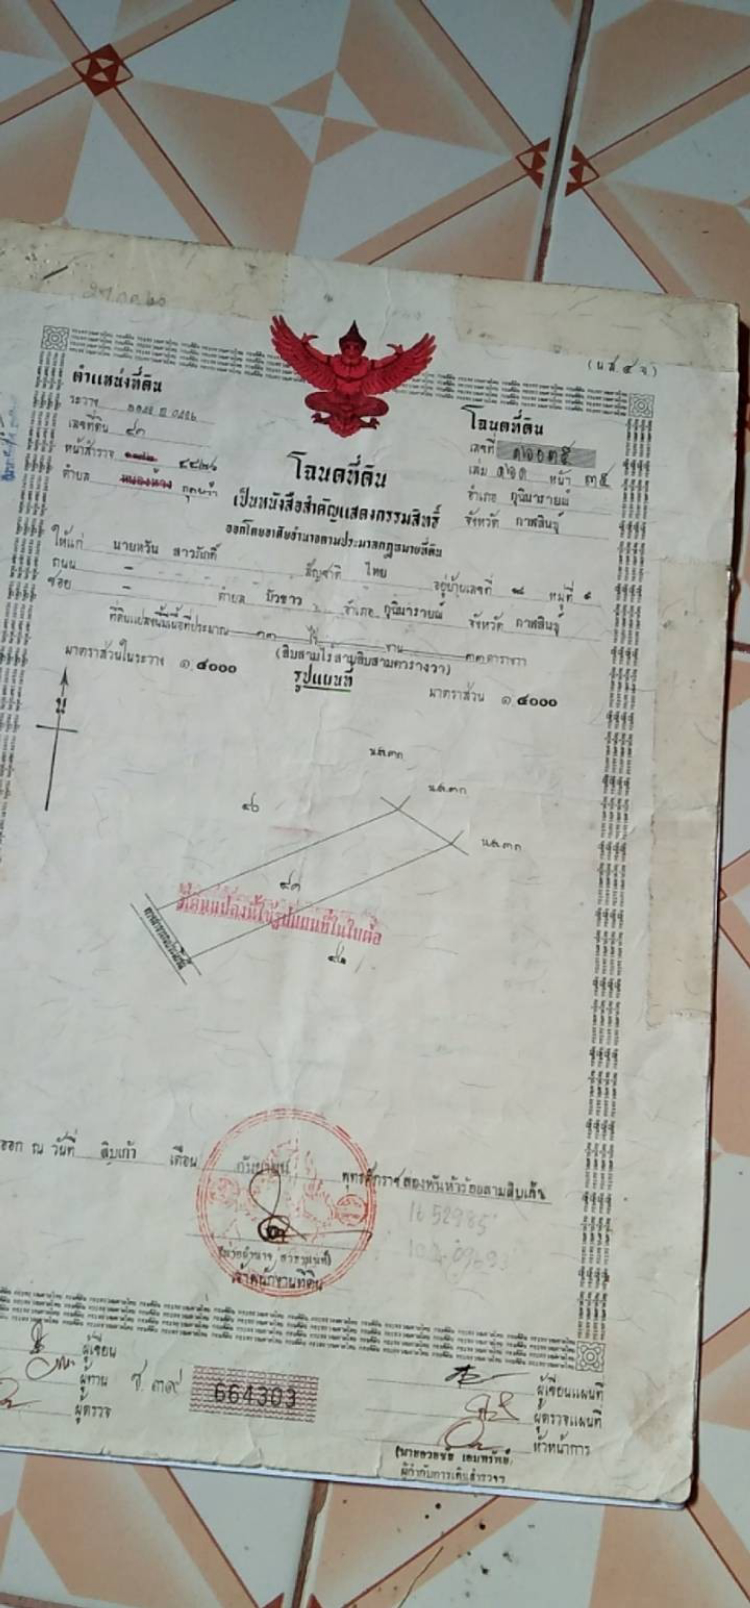 (น.ส. ๔ จ)
ตำแหน่งที่ดิน
ระวาง
เลขที่ดิน ๔๓
หน้าสำรวจ ๔๔๗๖
ตำบล หนองห้าง
โฉนดที่ดิน
เลขที่ ๑๖๐๓๕
เล่ม ๑๖๑ หน้า ๓๕
อำเภอ กุฉินารายณ์
จังหวัด กาฬสินธุ์
โฉนดที่ดิน
เป็นหนังสือสำคัญแสดงกรรมสิทธิ์
ออกโดยอาศัยอำนาจตามประมวลกฎหมายที่ดิน
ให้แก่ นายหวัน สาวภักดิ์ สัญชาติ ไทย อยู่บ้านเลขที่ หมู่ที่
ถนน –
ซอย – ตำบล บัวขาว อำเภอ กุฉินารายณ์ จังหวัด กาฬสินธุ์
ที่ดินแปลงนี้มีเนื้อที่ประมาณ ๑๓ ไร่ – งาน ๓๓ ตารางวา
(สิบสามไร่สามสิบสามตารางวา)
มาตราส่วนในระวาง ๑:๔๐๐๐ รูปแผนที่ มาตราส่วน ๑:๔๐๐๐
น
น.ส.๓ก
น.ส.๓ก
น.ส.๓ก
๔๓
ที่ดินแปลงนี้ใช้รูปแผนที่ในใบต่อ
ทางสาธารณประโยชน์
ออก ณ วันที่ สิบเก้า เดือน กันยายน พุทธศักราช สองพันห้าร้อยสามสิบเก้า
เจ้าพนักงานที่ดิน
ผู้เขียน
ผู้ทาน
ผู้ตรวจ
ช. ๓๙
664303
ผู้เขียนแผนที่
ผู้ตรวจแผนที่
หัวหน้าการ
ผู้กำกับการเดินสำรวจฯ